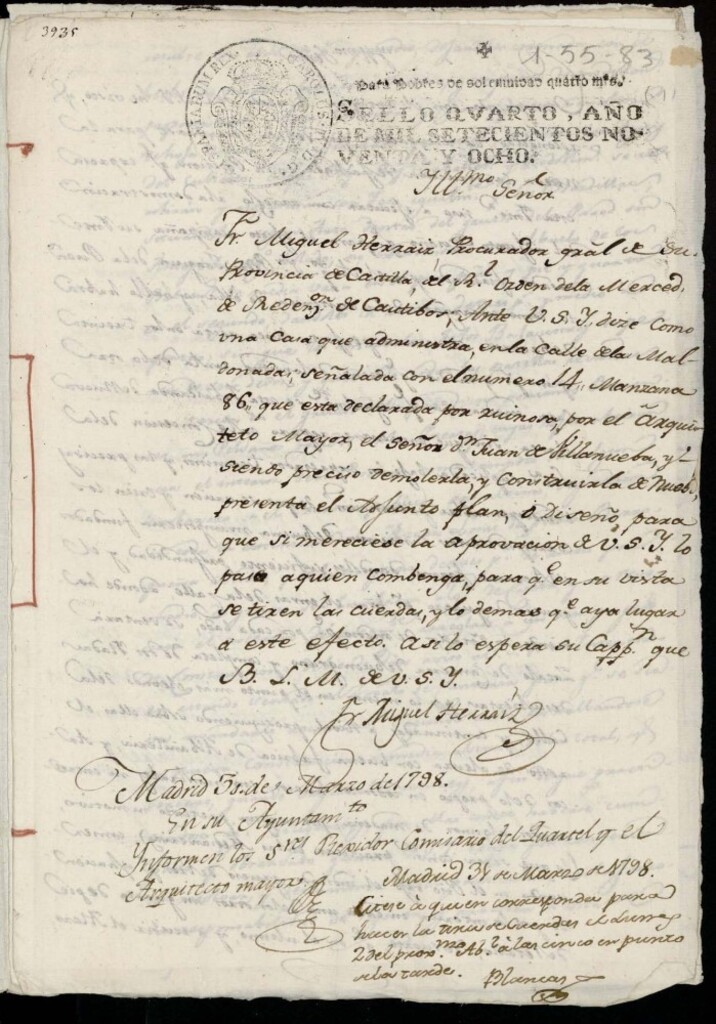 3935
1-55-83
Para Pobres de solemnidad quatro mrs.
SELLO QVARTO, AÑO
DE MIL SETECIENTOS NO-
VENTA Y OCHO.
Yllmo Señor
Fr. Miguel Herraiz, Procurador gral de su
Provincia de Castilla, del Rl. Orden dela Merced,
de Redempon. de Cautibos, Ante V.S.Y. dize como
vna Casa que administra, en la Calle dela Mal-
donada, señalada con el numero 14, Manzana
86, que esta declarada por ruinosa, por el Arqui-
teto Mayor, el señor dn. Juan de Villanueba, y
siendo preciso demolerla, y Construirla de Nuebo,
presenta el Adjunto plan, o Diseño, para
que si mereciese la aprovacion de V.S.Y. lo
pase aquien Combenga, para qe. en su vista
se tiren las cuerdas, y lo demas qe. aya lugar
a este efecto. Asi lo espera su Cappn. que
B. L. M. de V.S.Y.
Fr Miguel Herraiz
Madrid 30 de Marzo de 1798.
En su Ayuntamto
Ynformen los sres Rexidor Comisario del Quartel y el
Arquitecto mayor
Madrid 31 de Marzo de 1798.
Citese à quien corresponda para
hacer la tira de Cuerdas el Lunes
2 del proxmo. Abl. à las cinco en punto
de la tarde. Blancas